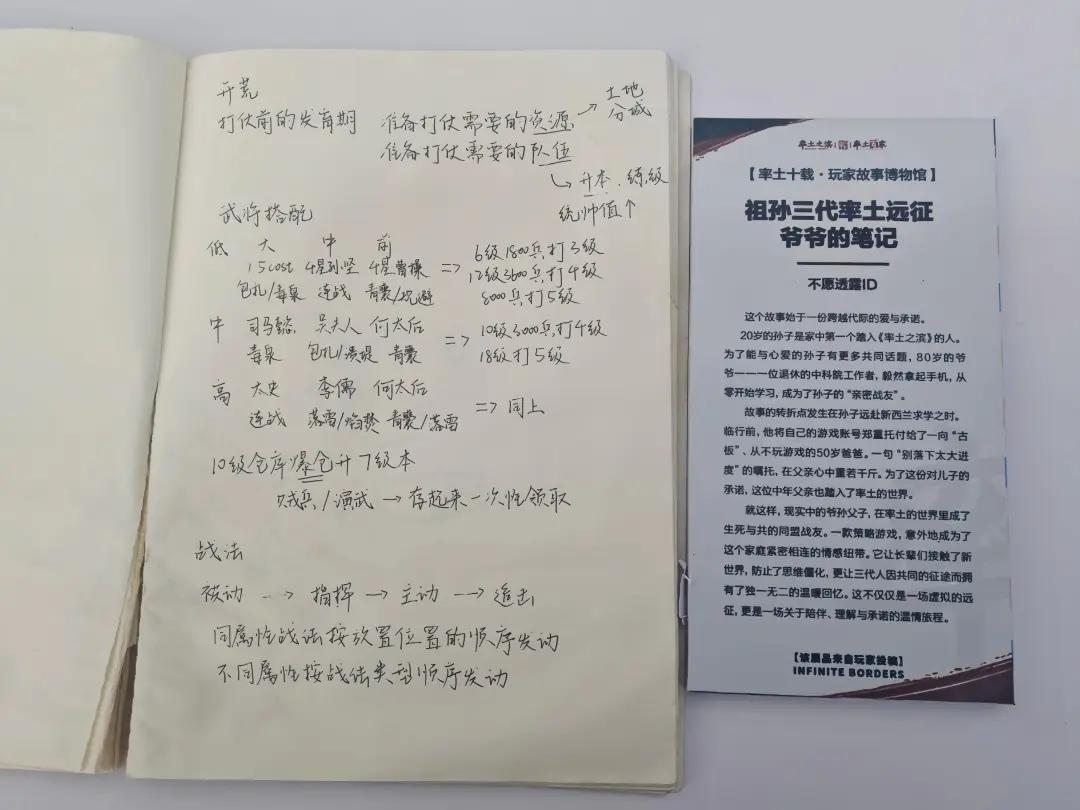 开荒
打仗前的发育期 准备打仗需要的资源 → 土地 分城
准备打仗需要的队伍
↳ 升本、练级
统帅值↑
武将搭配
低 大 中 前
15cost 4星孙坚 4星曹操 => 6级1800兵打3级
12级3600兵打4级
包扎/毒泉 连战 青囊/规避 8000兵打5级
中 司马懿 吴夫人 何太后 => 10级3000兵打4级
毒泉 包扎/溃堤 青囊 18级打5级
高 太史 李儒 何太后
连战 落雷/焰焚 青囊/落雷 => 同上
10级仓库爆仓升7级本
贼兵/演武 → 存起来一次性领取
战法
被动 --> 指挥 → 主动 --> 追击
同属性战法按放置位置的顺序发动
不同属性按战法类型顺序发动
率土之滨
【率土十载·玩家故事博物馆】
祖孙三代率土远征
爷爷的笔记
不愿透露ID
这个故事始于一份跨越代际的爱与承诺。
20岁的孙子是家中第一个踏入《率土之滨》的人。
为了能与心爱的孙子有更多共同话题，80岁的爷
爷一一一位退休的中科院工作者，毅然拿起手机，从
零开始学习，成为了孙子的“亲密战友”。
故事的转折点发生在孙子远赴新西兰求学之时。
临行前，他将自己的游戏账号郑重托付给了一向“古
板”、从不玩游戏的50岁爸爸。一句“别落下太大进
度”的嘱托，在父亲心中重若千斤。为了这份对儿子的
承诺，这位中年父亲也踏入了率土的世界。
就这样，现实中的爷孙父子，在率土的世界里成了
生死与共的同盟战友。一款策略游戏，意外地成为了
这个家庭紧密相连的情感纽带。它让长辈们接触了新
世界，防止了思维僵化，更让三代人因共同的征途而拥
有了独一无二的温暖回忆。这不仅仅是一场虚拟的远
征，更是一场关于陪伴、理解与承诺的温情旅程。
【该展品来自玩家投稿】
INFINITE BORDERS